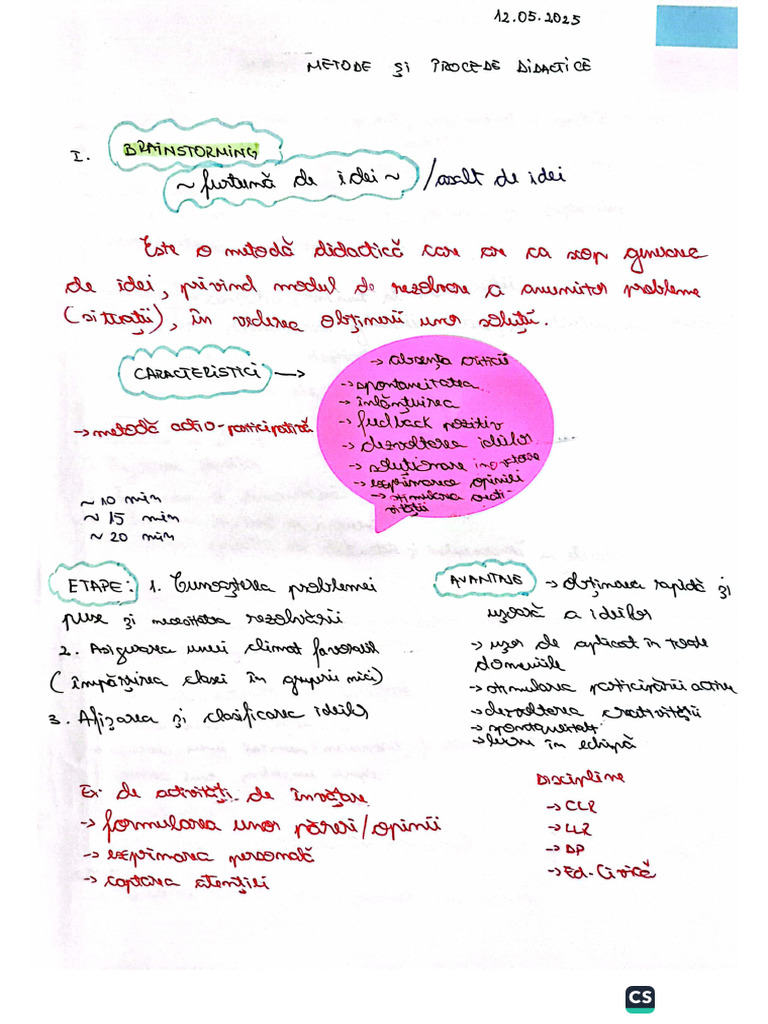 12.05.2025
METODE ȘI PROCEDE DIDACTICE
I. BRAINSTORMING
~ furtună de idei ~ / asalt de idei
Este o metodă didactică care are ca scop generarea
de idei, privind modul de rezolvare a anumitor probleme
(situații), în vederea obținerii unor soluții.
CARACTERISTICI →
→ absența criticii
→ spontaneitatea
→ înlănțuirea
→ feedback pozitiv
→ dezvoltarea ideilor
→ soluționare inovatoare
→ exprimarea opiniei
→ stimularea creati-
vității
→ metodă activ-participativă
~ 10 min
~ 15 min
~ 20 min
ETAPE: 1. Cunoașterea problemei
puse și necesitatea rezolvării
2. Asigurarea unui climat favorabil
(împărțirea clasei în grupuri mici)
3. Afișarea și clasificarea ideilor
AVANTAJE → obținerea rapidă și
ușoară a ideilor
→ ușor de aplicat în toate
domeniile
→ stimularea participării active
→ dezvoltarea creativității
→ spontaneității
→ lucru în echipă
Ex de activități de învățare
→ formularea unor păreri/opinii
→ exprimarea personală
→ captarea atenției
Discipline
→ CLR
→ LLR
→ DP
→ Ed. Civică
CS